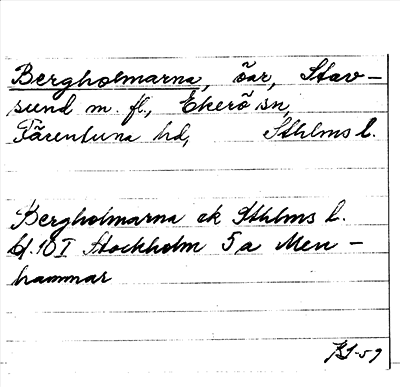 Bergholmarna, öar, Stav-
sund m. fl., Ekerö sn,
Färentuna hd, Sthlms l.
Bergholmarna ek Sthlms l.
bl. 10 I Stockholm 5 a Men-
hammar